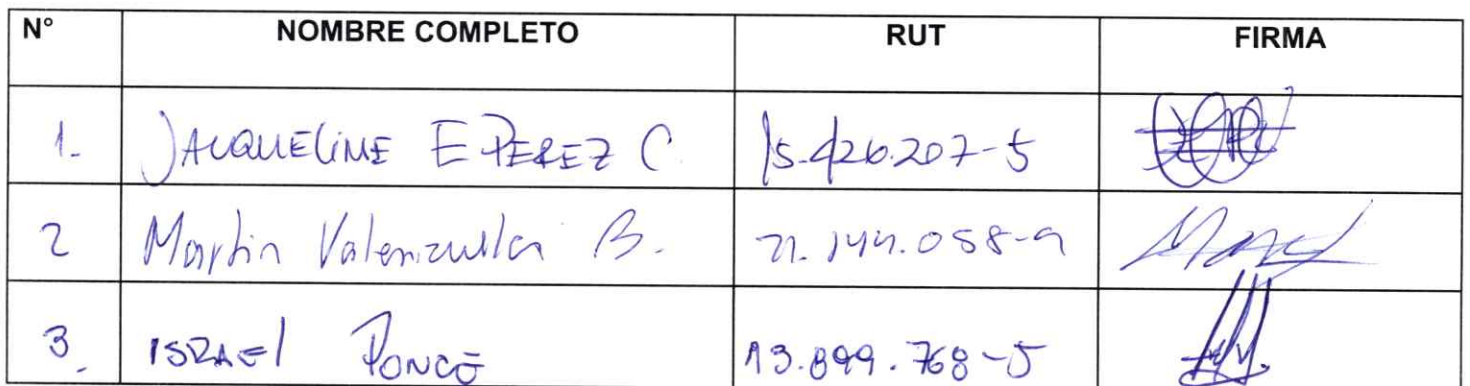 N° NOMBRE COMPLETO RUT FIRMA
1. JACQUELINE E PEREZ C. 15.426.207-5
2 Martin Valenzuela B. 21.144.058-9
3. ISRAEL PONCE 13.899.768-5